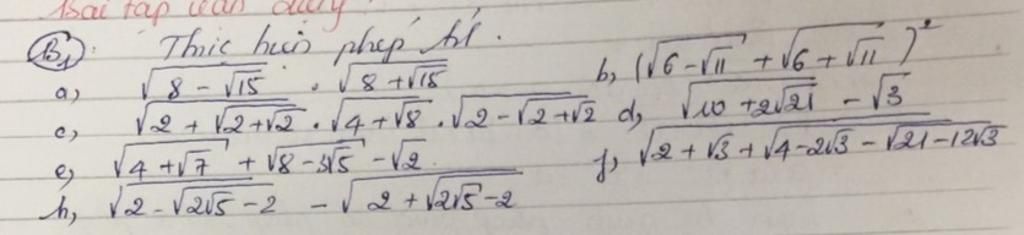 Bài tập
B1: Thực hiện phép tí.
a, √(8 - √15) . √(8 + √15) b, (√(6 - √11) + √(6 + √11))²
c, √(2 + √(2+√2)) . √(4 + √8) . √(2 - √(2+√2)) d, √(10 + 2√21) - √3
e, √(4 + √7) + √(8 - 3√5) - √2 f, √(2 + √3 + √(4 - 2√3 - √(21 - 12√3)))
h, √(2 - √(2√5 - 2)) - √(2 + √(2√5 - 2))